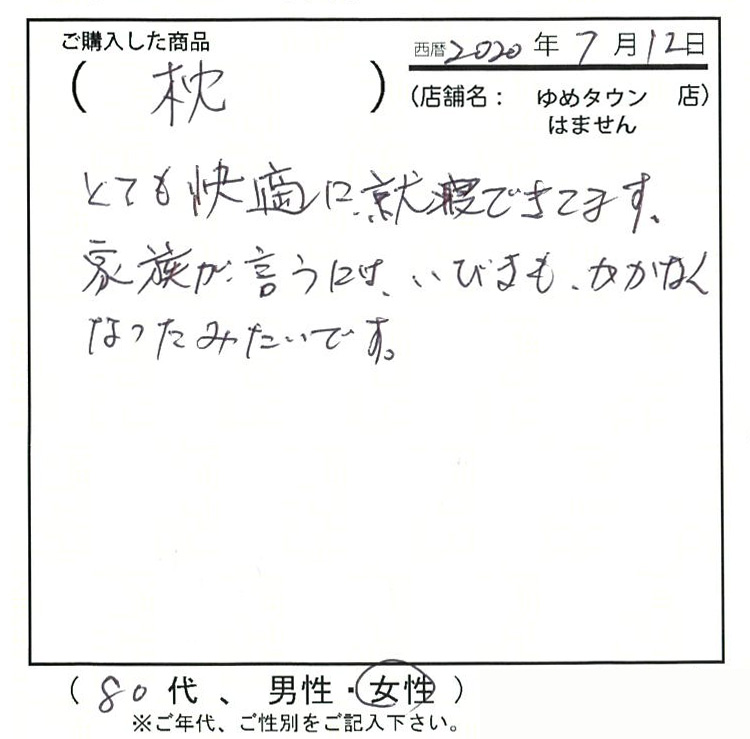 ご購入した商品
(枕)
西暦2020年7月12日
(店舗名: ゆめタウン 店)
はません
とても快適に就寝できてます。
家族が言うには、いびきも、かかなく
なったみたいです。
(80代、男性・女性)
※ご年代、ご性別をご記入下さい。